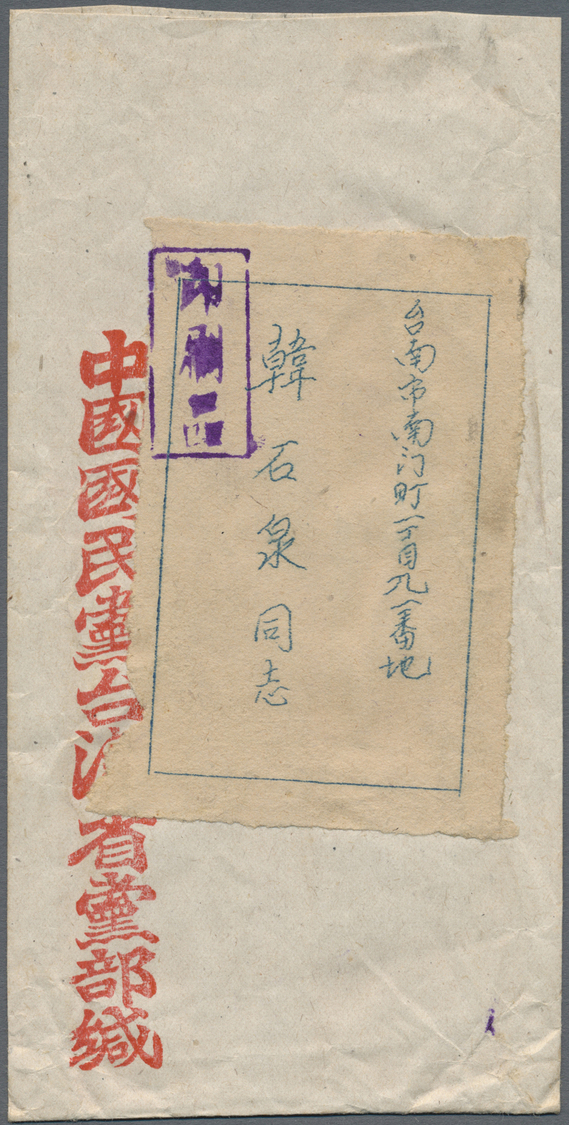 台南市南门町一丁目九一番地
韓石泉同志
印刷品
中國國民黨台湾省黨部緘